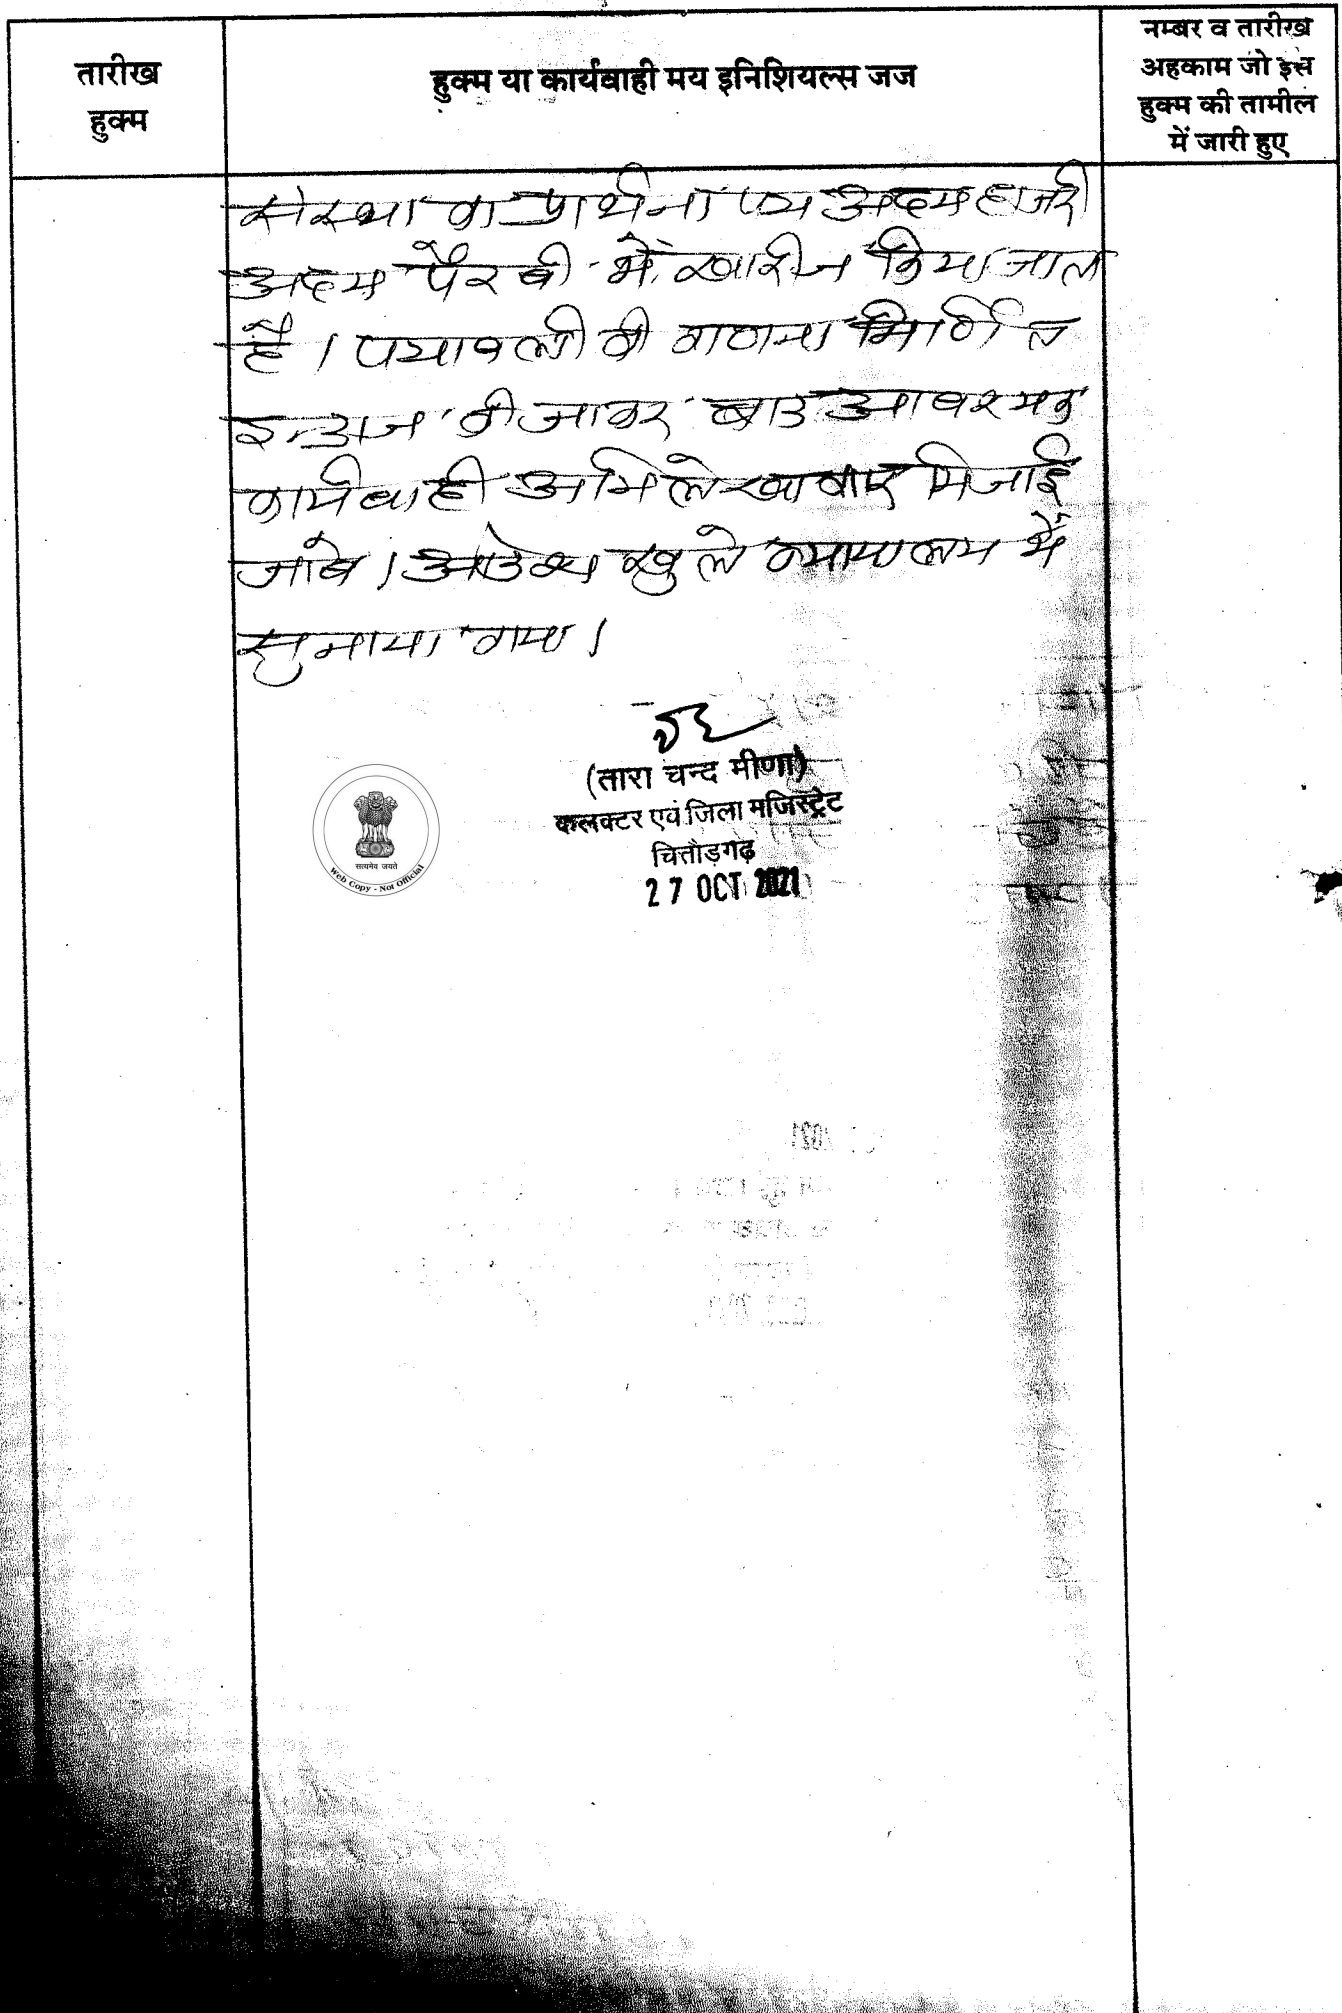 तारीख
हुक्म
हुक्म या कार्यवाही मय इनिशियल्स जज
नम्बर व तारीख
अहकाम जो इस
हुक्म की तामील
में जारी हुए
संस्था का प्रार्थना पत्र अदम हाजरी
अदम पैरवी में खारीज किया जाता
है। पत्रावली की गणना निर्णित
इन्द्राज की जाकर बाद आवश्यक
कार्यवाही अभिलेखागार भिजाई
जावे। आदेश खुले न्यायालय में
सुनाया गया।
(तारा चन्द मीणा)
कलक्टर एवं जिला मजिस्ट्रेट
चित्तौड़गढ़
27 OCT 2021
सत्यमेव जयते
Web Copy - Not Official